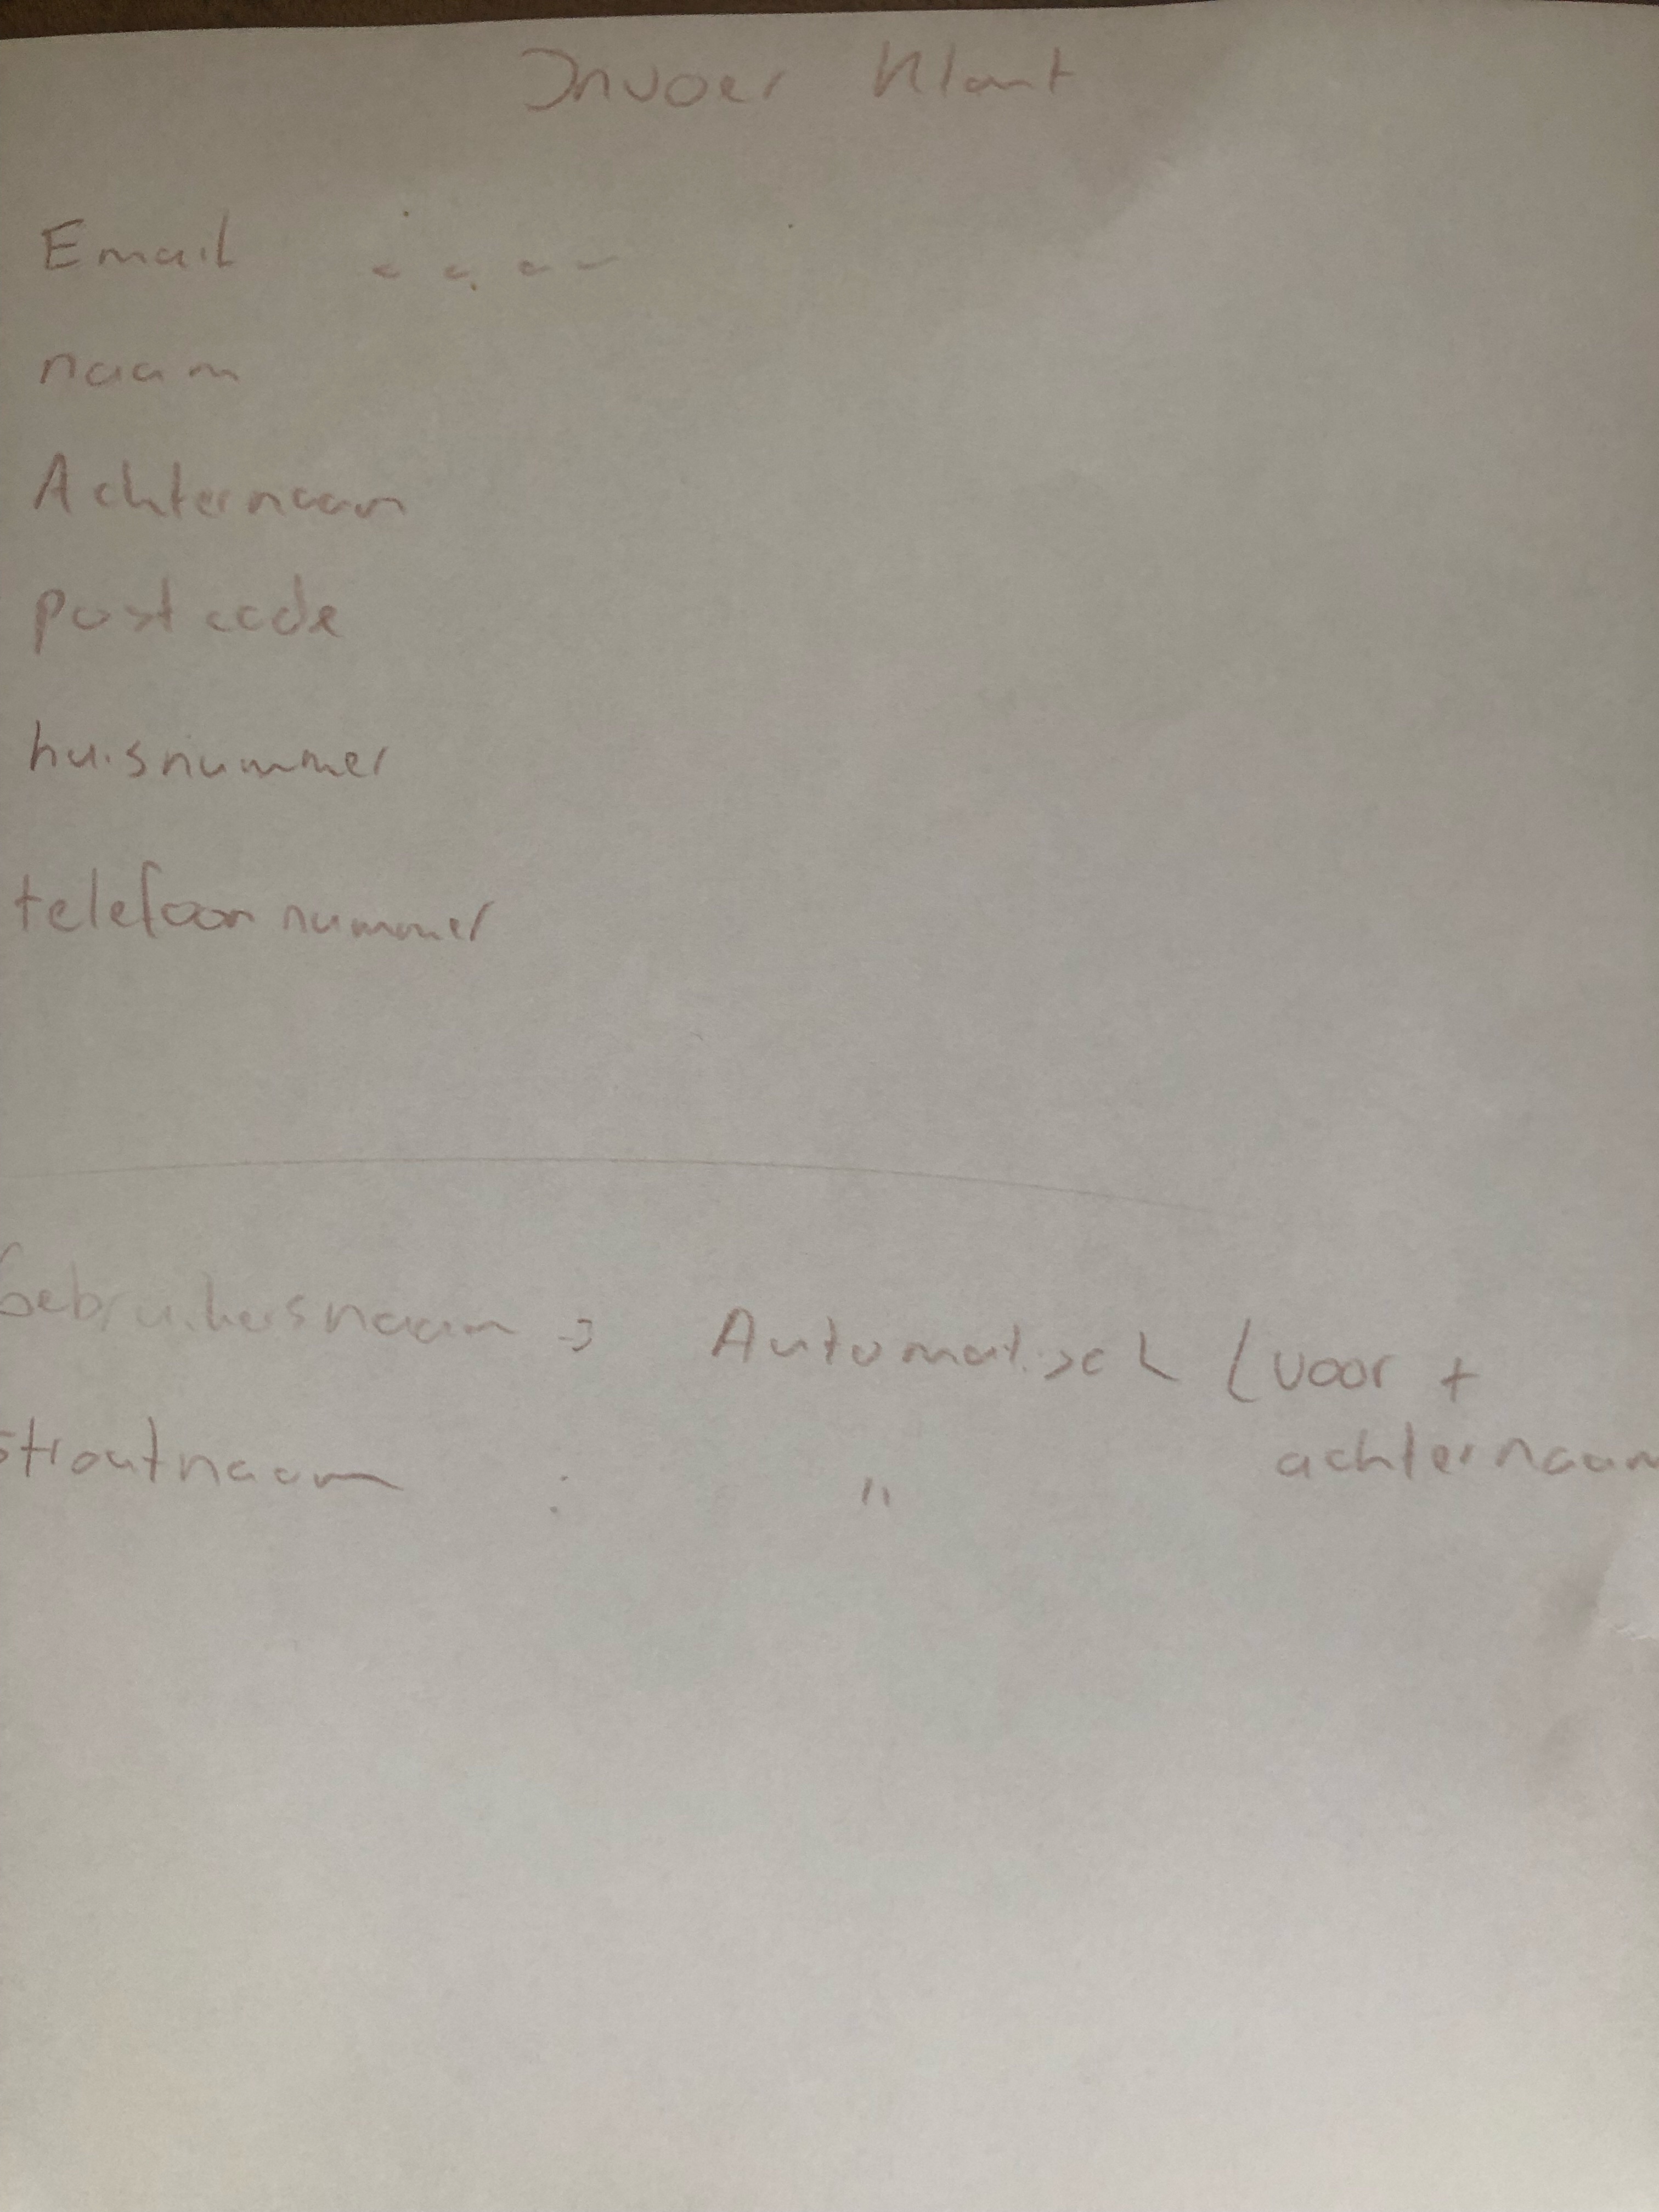 Invoer Klant
Email ....
naam
Achternaam
postcode
huisnummer
telefoon nummer
Gebruikersnaam → Automatisch (voor +
achternaam
straatnaam : "